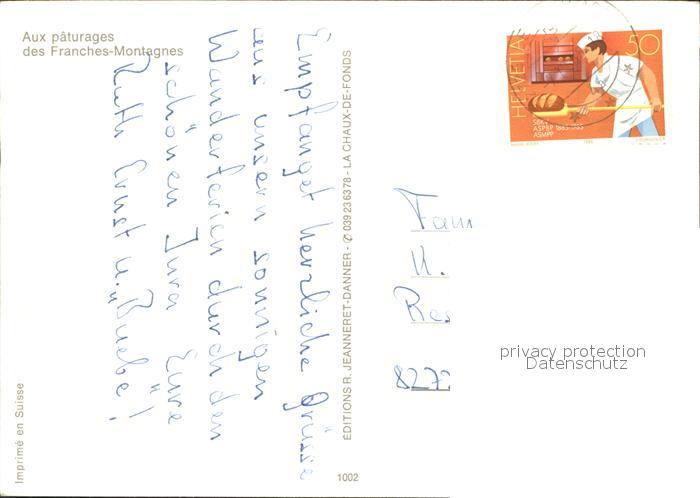 Aux pâturages
des Franches-Montagnes
Empfanget herzliche Grüsse
aus unsern sonnigen
Wanderferien durch den
schönen Jura Eure
Ruth Ernst u. Buebe!
EDITIONS R. JEANNERET-DANNER - ✆ 039 236378 - LA CHAUX-DE-FONDS
Imprimé en Suisse
1002
HELVETIA
50
ASPBP 1885-1985
ASMPP
Fam
U.
Res
8272
privacy protection
Datenschutz